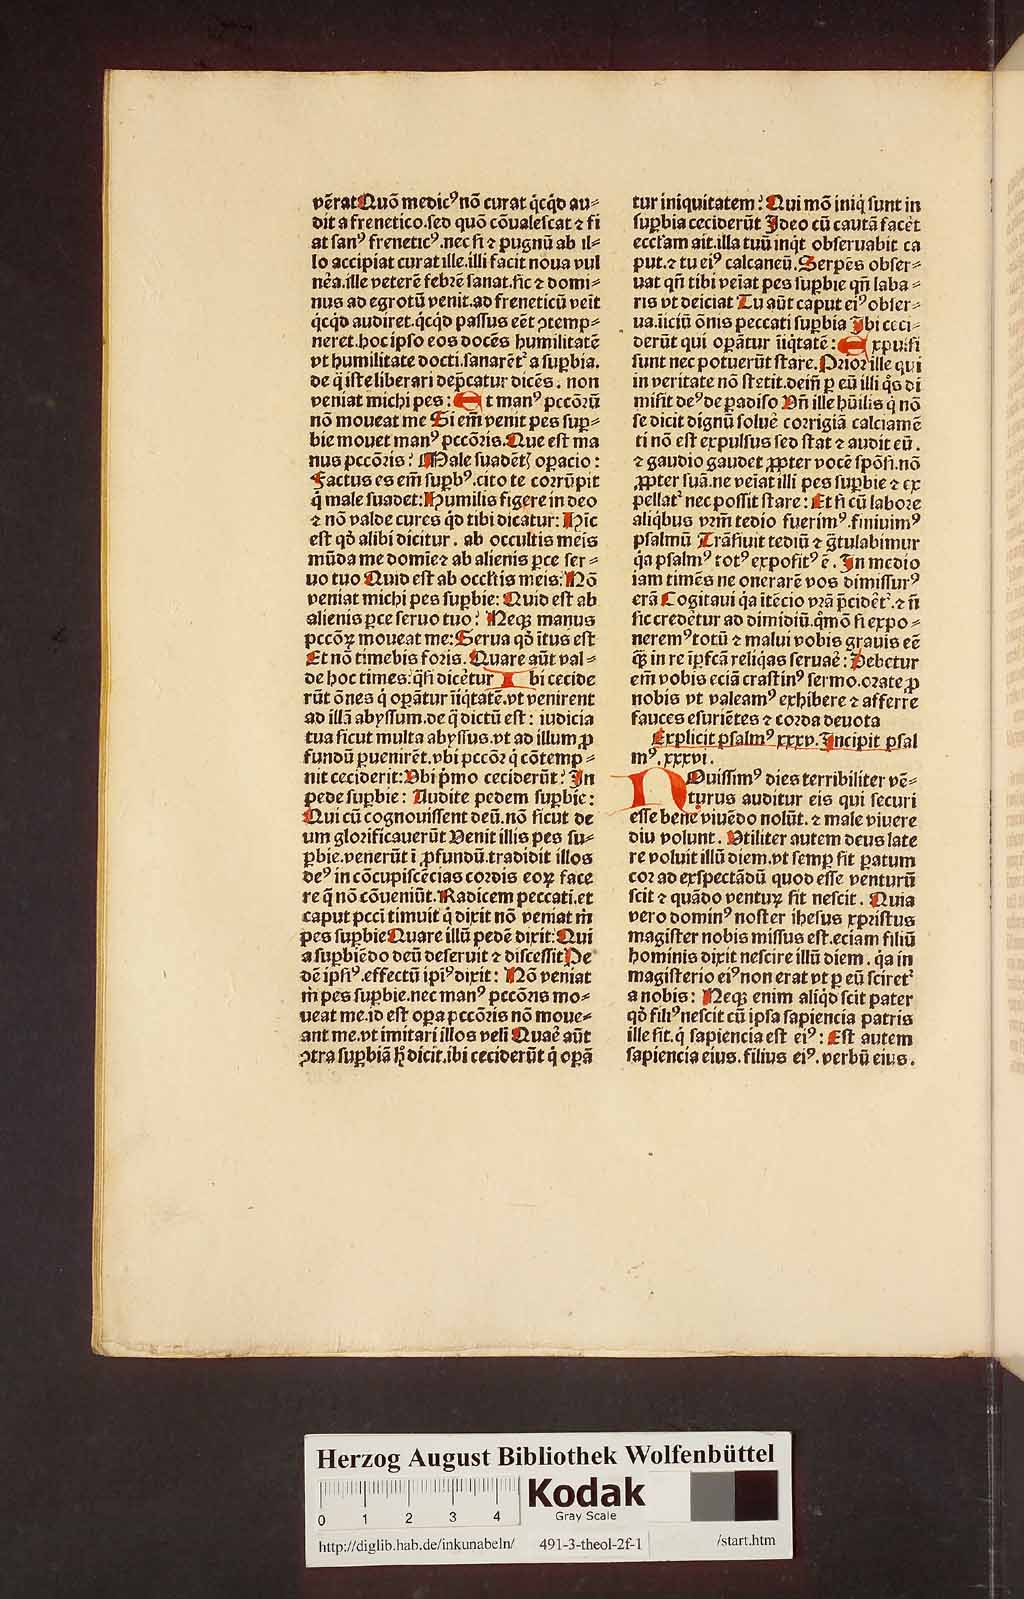 vērat Quō medicꝰ nō curat q̇cq̇d au⸗
dit a frenetico.sed quō cōualescat ⁊ fi
at sanꝰ freneticꝰ.nec si ⁊ pugnū ab il⸗
lo accipiat curat ille.illi facit noua vul
nėa.ille veterē febrē sanat.sic ⁊ domi⸗
nus ad egrotū venit.ad freneticū veīt
q̇cq̇d audiret.q̇cq̇d passus eēt ꝯtemp⸗
neret.hoc ipso eos docēs humilitatē
vt humilitate docti.sanarētᷣ a suꝑbia.
de q̇ iste liberari dep̄catur dicēs. non
veniat michi pes: Et manꝰ pccōrū
nō moueat me Si em̄ venit pes suꝑ⸗
bie mouet manꝰ pccōris.Que est ma
nus pccōris? Male suadētꝭ opacio:
Factus es em̄ suꝑbꝰ.cito te corrūpit
q̇ male suadet: Humilis figere in deo
⁊ nō valde cures q̇d tibi dicatur: Hic
est qd̓ alibi dicitur. ab occultis meis
mūda me domīe⁊ ab alienis ꝑce ser⸗
uo tuo Quid est ab occl̄tis meis: Nō
veniat michi pes suꝑbie: Quid est ab
alienis ꝑce seruo tuo? Neqꝫ manus
pccōꝝ moueat me: Serua qd̓ ītus est
Et nō timebis foris. Quare aūt val⸗
de hoc times: q̇si dicėtur Ibi cecide
rūt ōnes q̇ oꝑātur īiq̇tatē.vt venirent
ad illā abyssum.de q̇ dictū est: iudicia
tua sicut multa abyssus.vt ad illum ꝓ
fundū ꝑuenirēt.vbi pccōr q̇ cōtemp⸗
nit ceciderit: Vbi p̓mo ceciderūt? In
pede suꝑbie: Audite pedem suꝑbie:
Qui cū cognouissent deū.nō sicut de
um glorificauerūt Venit illis pes su⸗
ꝑbie.venerūt ī ꝓfundū.tradidit illos
deꝰ in cōcupiscēcias cordis eoꝝ face
re q̄ nō cōueniūt. Radicem peccati.et
caput pcci timuit q̇ dixit nō veniat m̓
pes suꝑbie Quare illū pedē dixit: Qui
a suꝑbiēdo deū deseruit ⁊ discessit Pe
dē ipsiꝰ.effectū ipiꝰ dixit: Nō veniat
m̓ pes suꝑbie.nec manꝰ pccōris mo⸗
ueat me.id est oꝑa pccōris nō moue⸗
ant me.vt imitari illos veli Quaė aūt
ꝯtra suꝑbiā h̄ dicit.ibi ceciderūt q̇ oꝑā
tur iniquitatem? Qui mō iniq̇ sunt in
suꝑbia ceciderūt Ideo cū cautā facėt
eccl̄am ait.illa tuū inq̇t obseruabit ca
put.⁊ tu eiꝰ calcaneū. Serpēs obser⸗
uat qn̄ tibi veīat pes suꝑbie qn̄ laba⸗
ris vt deiciat Tu aūt caput eiꝰ obser⸗
ua.īiciū ōnis peccati suꝑbia Ibi ceci⸗
derūt qui oꝑātur īiq̇tatē: Expulsi
sunt nec potuerūt stare. Prior ille qui
in veritate nō stetit.dein̄ ꝑ eū illi q̇s di
misit deꝰ de ꝑadiso Vn̄ ille hūilis q̇ nō
se dicit dignū soluė corrigiā calciamē
ti nō est expulsus sed stat ⁊ audit eū.
⁊ gaudio gaudet ꝓpter vocē spōsi.nō
ꝓpter suā.ne veīat illi pes suꝑbie ⁊ ex
pellatᷣ nec possit stare: Et si cū labore
aliq̇bus vrm̄ tedio fuerimꝰ.finiuimꝰ
psalmū Trāsiuit tediū ⁊ g̓tulabimur
q̇a psalmꝰ totꝰ expositꝰ ē. In medio
iam timēs ne onerarē vos dimissurꝰ
erā Cogitaui q̇a itēcio vrā p̄cidėtᷣ.⁊ n̄
sic credėtur ad dimidiū.q̇mō si expo⸗
neremꝰ totū ⁊ malui vobis grauis eē
q̄ꝫ in re īꝑfcā reliq̇as seruaė: Debetur
em̄ vobis eciā crastinꝰ sermo.orate ꝓ
nobis vt valeamꝰ exhibere ⁊ afferre
fauces esuriētes ⁊ corda deuota
Explicit psalmꝰ xxxv. Incipit psal
mꝰ. xxxvi.
Nouissimꝰ dies terribiliter vē⸗
turus auditur eis qui securi
esse bene viuēdo nolūt. ⁊ male viuere
diu volunt. Vtiliter autem deus late
re voluit illū diem.vt semꝑ sit ꝑatum
cor ad exspectādū quod esse venturū
scit ⁊ quādo ventuꝝ sit nescit. Quia
vero dominꝰ noster ihesus xpristus
magister nobis missus est.eciam filiū
hominis dixit nescire illū diem. q̇a in
magisterio eiꝰ non erat vt ꝑ eū sciretᷣ
a nobis: Neqꝫ enim aliq̇d scit pater
qd̓ filiꝰ nescit cū ipsa sapiencia patris
ille sit.q̇ sapiencia est eiꝰ: Est autem
sapiencia eius.filius eiꝰ.verbū eius.
Herzog August Bibliothek Wolfenbüttel
0 1 2 3 4
Kodak
Gray Scale
http://diglib.hab.de/inkunabeln/ 491-3-theol-2f-1 /start.htm